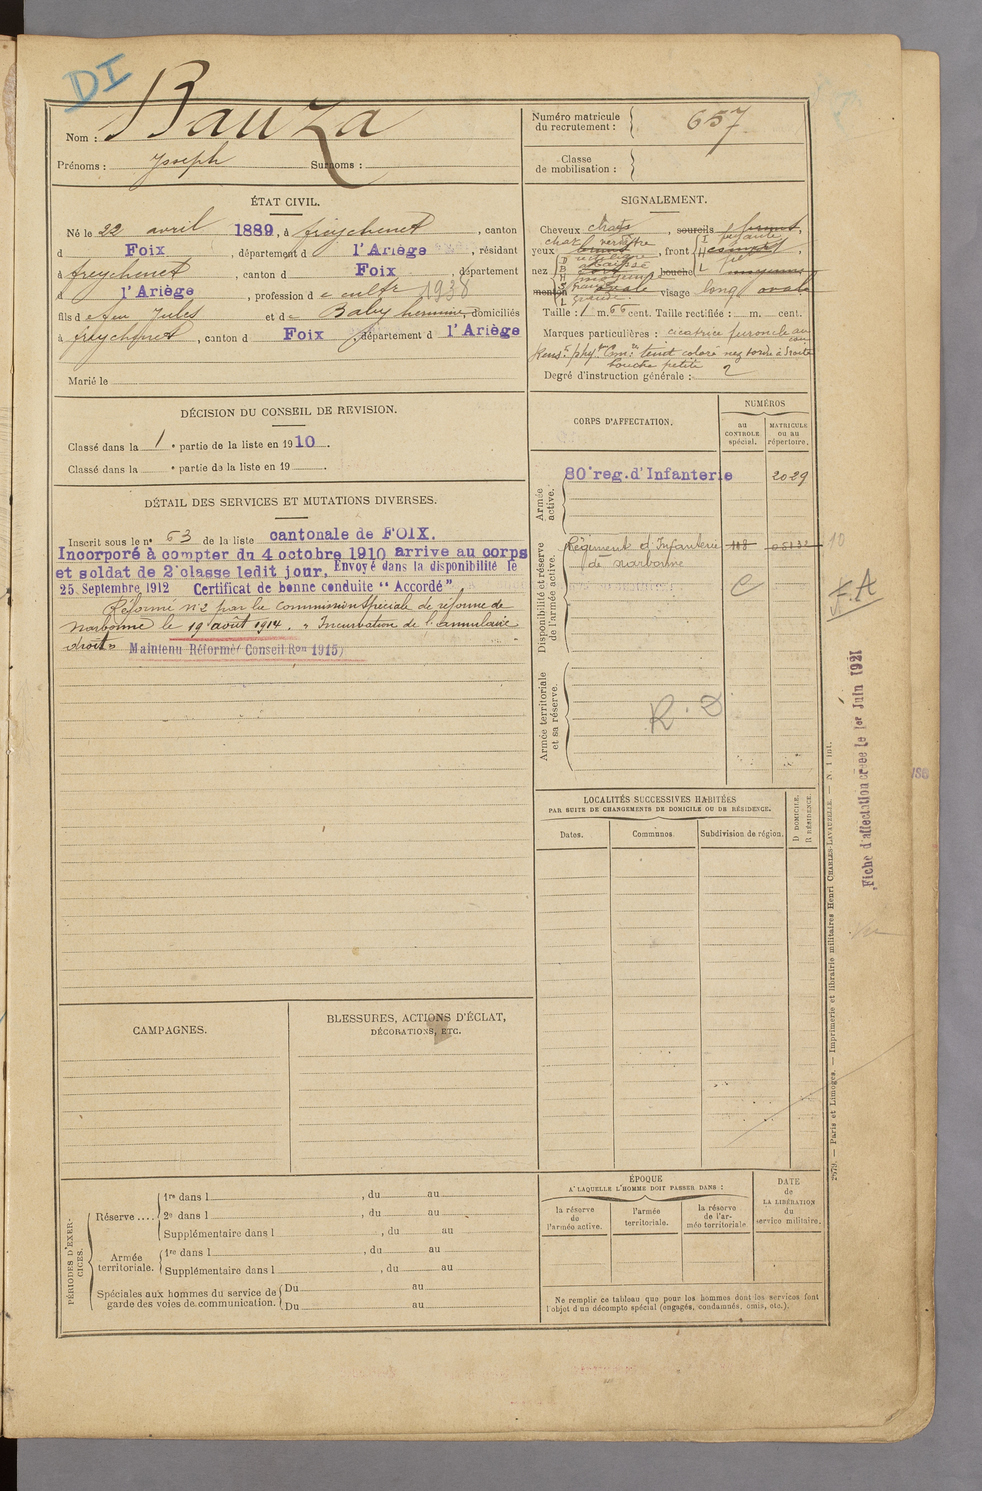 DI
Nom : Bauza
Prénoms : Joseph Surnoms :
Numéro matricule du recrutement : 657
Classe de mobilisation :
ÉTAT CIVIL.
Né le 22 avril 1889, à freychenet, canton
d Foix, département d l'Ariège, résidant
à freychenet, canton d Foix, département
d l'Ariège, profession d cultr 1938
fils de feu Jules et de Baby, domiciliés
à freychenet, canton d Foix, département d l'Ariège
Marié le
SIGNALEMENT.
Cheveux chat, sourcils
yeux, front
nez, bouche
menton, visage long ovale
Taille : 1 m. 66 cent. Taille rectifiée : m. cent.
Marques particulières : cicatrice furoncle au
Rens. phy. teint coloré nez tordu à droite
bouche petite
Degré d'instruction générale : 2
DÉCISION DU CONSEIL DE REVISION.
Classé dans la 1e partie de la liste en 1910.
Classé dans la e partie de la liste en 19 .
DÉTAIL DES SERVICES ET MUTATIONS DIVERSES.
Inscrit sous le n° 63 de la liste cantonale de FOIX.
Incorporé à compter du 4 octobre 1910 arrive au corps
et soldat de 2e classe ledit jour, Envoyé dans la disponibilité le
25 Septembre 1912 Certificat de bonne conduite "Accordé"
Réformé n°2 par la Commission Spéciale de réforme de
Narbonne le 19 août 1914. " Incurbation de l'annulaire
droit " Maintenu Réformé (Conseil Ron 1915)
CORPS D'AFFECTATION.
NUMÉROS
au CONTROLE spécial.
MATRICULE ou au répertoire.
Armée active.
80e reg. d'Infanterie 2029
Disponibilité et réserve de l'armée active.
Régiment d'Infanterie
de Narbonne
C
10
F.A
Armée territoriale et sa réserve.
R. D
Fiche d'affectation créée le 1er Juin 1921
LOCALITÉS SUCCESSIVES HABITÉES
PAR SUITE DE CHANGEMENTS DE DOMICILE OU DE RÉSIDENCE.
Dates. Communes. Subdivision de région. D DOMICILE. R RÉSIDENCE.
CAMPAGNES.
BLESSURES, ACTIONS D'ÉCLAT,
DÉCORATIONS, ETC.
PÉRIODES D'EXERCICES.
Réserve ....
1re dans l , du au
2e dans l , du au
Supplémentaire dans l , du au
Armée territoriale.
1re dans l , du au
Supplémentaire dans l , du au
Spéciales aux hommes du service de garde des voies de communication.
Du au
Du au
ÉPOQUE
A LAQUELLE L'HOMME DOIT PASSER DANS :
la réserve de l'armée active.
l'armée territoriale.
la réserve de l'armée territoriale
DATE de LA LIBÉRATION du service militaire.
Ne remplir ce tableau que pour les hommes dont les services font
l'objet d'un décompte spécial (engagés, condamnés, omis, etc.).
Paris et Limoges. — Imprimerie et librairie militaires Henri CHARLES-LAVAUZELLE. — N. 1 int.